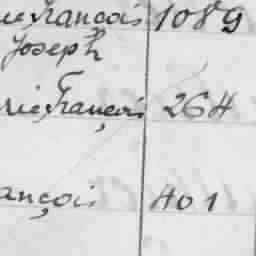 ue françois 1089
Joseph
rie François 264
ançois 401